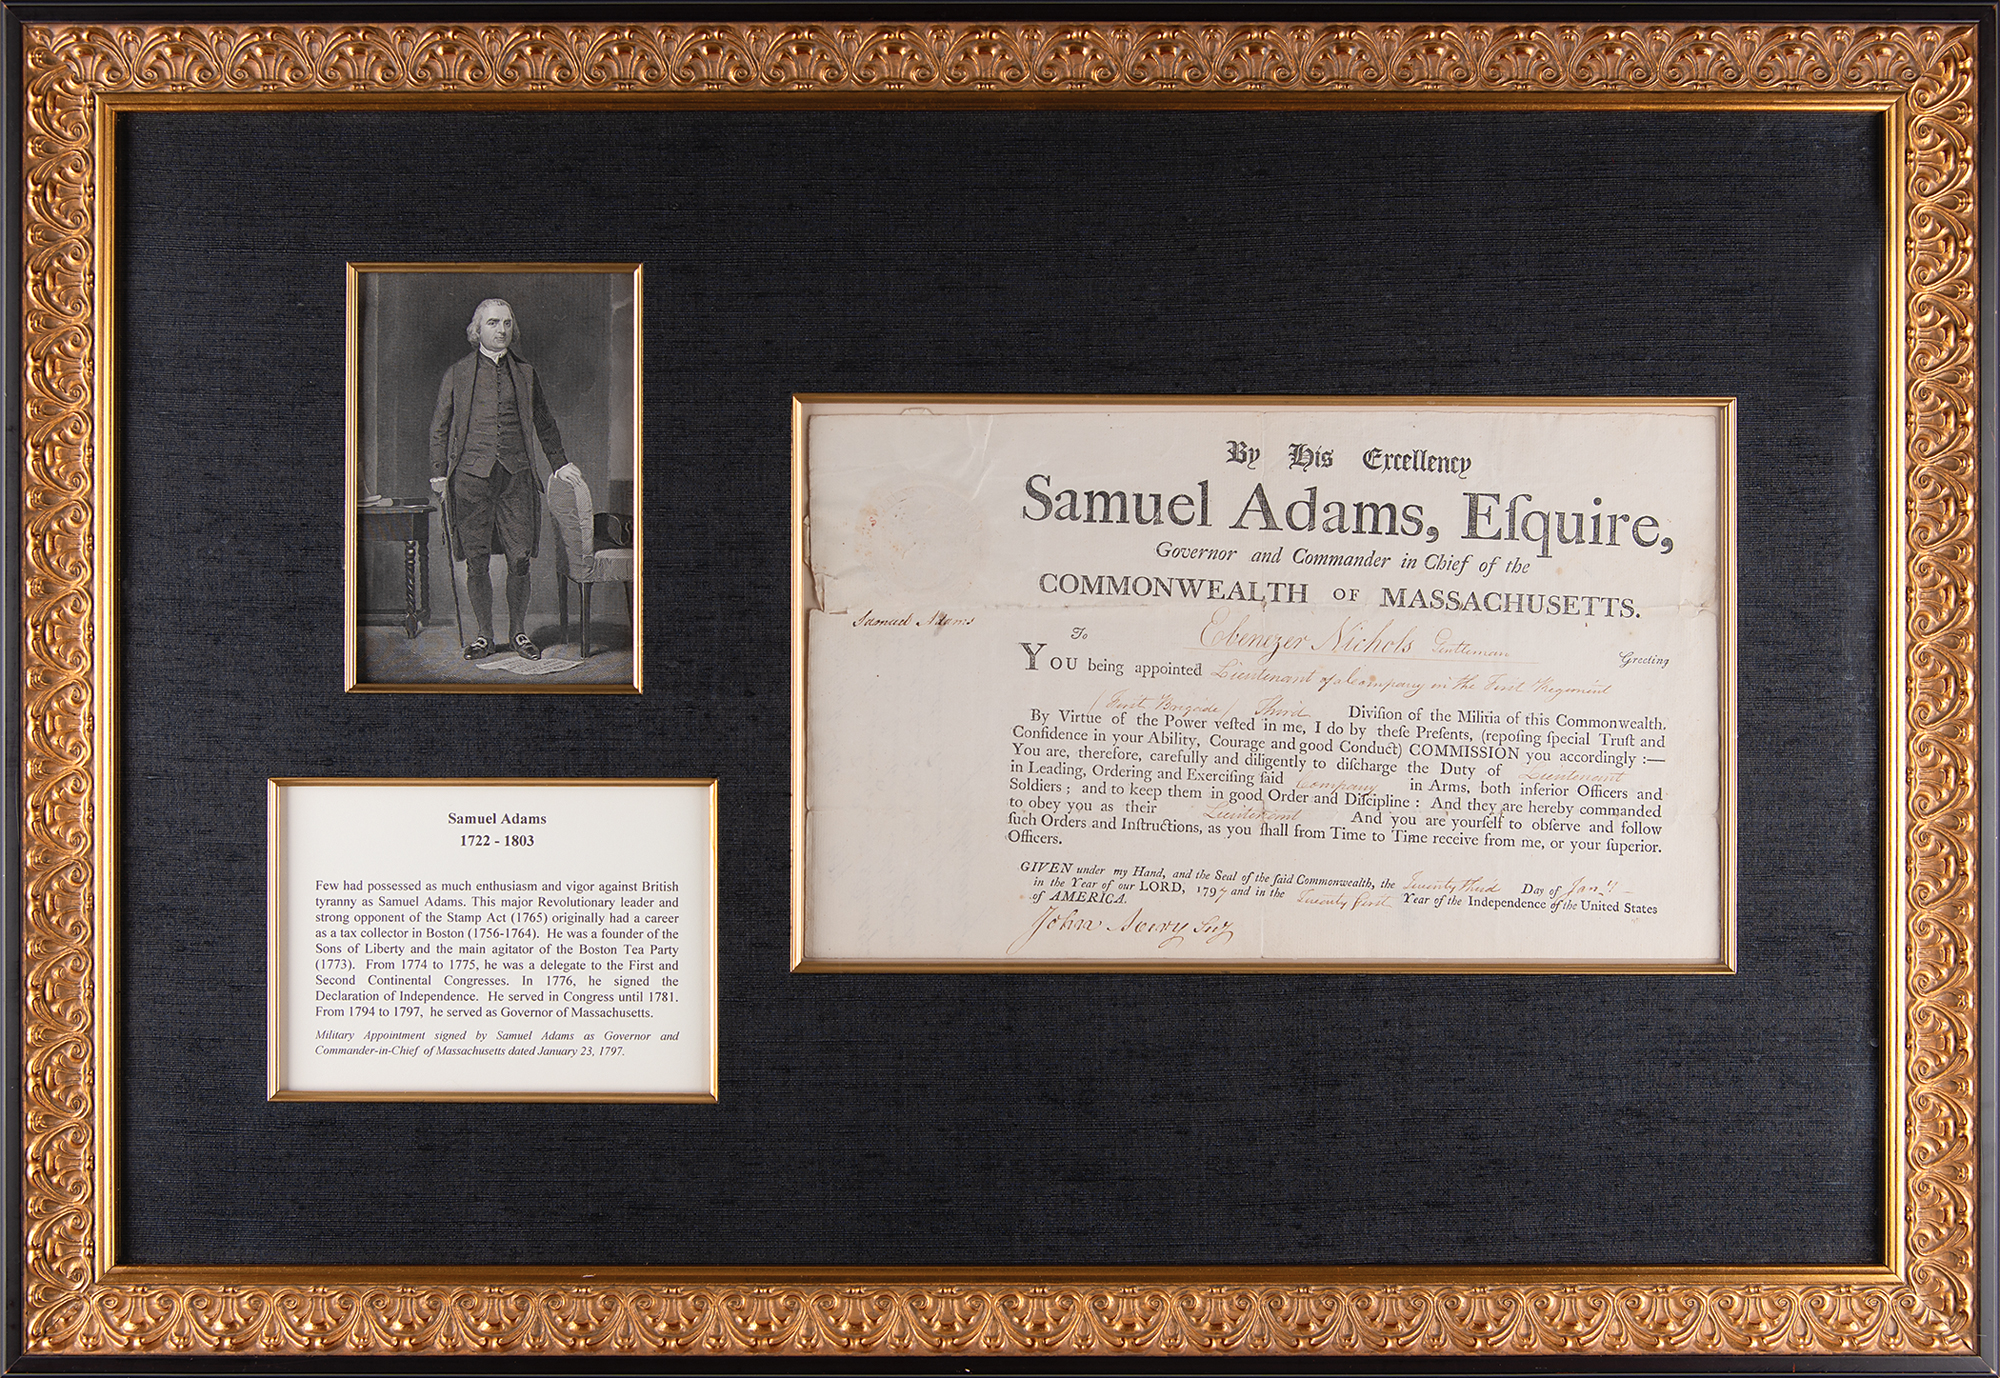 Samuel Adams
1722 - 1803
Few had possessed as much enthusiasm and vigor against British
tyranny as Samuel Adams. This major Revolutionary leader and
strong opponent of the Stamp Act (1765) originally had a career
as a tax collector in Boston (1756-1764). He was a founder of the
Sons of Liberty and the main agitator of the Boston Tea Party
(1773). From 1774 to 1775, he was a delegate to the First and
Second Continental Congresses. In 1776, he signed the
Declaration of Independence. He served in Congress until 1781.
From 1794 to 1797, he served as Governor of Massachusetts.
Military Appointment signed by Samuel Adams as Governor and
Commander-in-Chief of Massachusetts dated January 23, 1797.
By His Excellency
Samuel Adams, Eſquire,
Governor and Commander in Chief of the
COMMONWEALTH OF MASSACHUSETTS.
Samuel Adams
To Ebenezer Nichols Gentleman Greeting
YOU being appointed Lieutenant of a Company in the First Regiment
(First Brigade) Third Diviſion of the Militia of this Commonwealth.
By Virtue of the Power veſted in me, I do by theſe Preſents, (repoſing ſpecial Truſt and
Confidence in your Ability, Courage and good Conduct) COMMISSION you accordingly :—
You are, therefore, carefully and diligently to diſcharge the Duty of Lieutenant
in Leading, Ordering and Exerciſing ſaid Company in Arms, both inferior Officers and
Soldiers ; and to keep them in good Order and Diſcipline : And they are hereby commanded
to obey you as their Lieutenant And you are yourſelf to obſerve and follow
ſuch Orders and Inſtructions, as you ſhall from Time to Time receive from me, or your ſuperior.
Officers.
GIVEN under my Hand, and the Seal of the ſaid Commonwealth, the Twenty third Day of Jan.y
in the Year of our LORD, 1797 and in the Twenty first Year of the Independence of the United States
of AMERICA.
John Avery Secy